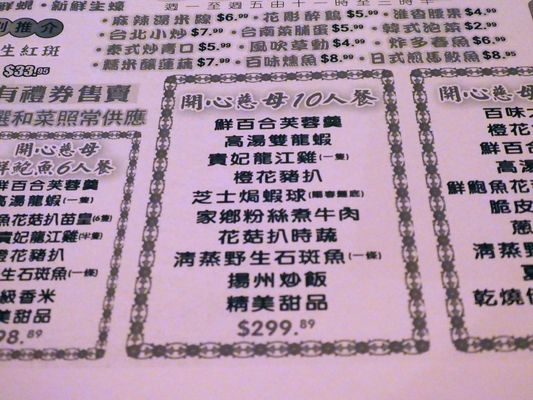 新鮮生蠔
週一至週五由十一時至三時半
麻辣湯米線$6.99 · 花彫醉鷄$5.99 · 雅香腰果$4.99
台北小炒$7.99 · 台南菜脯蛋$5.99 · 韓式泡菜$2.99
泰式炒青口$5.99 · 風吹草動$4.99 · 炸多春魚$6.99
糯米釀蓮藕$7.99 · 百味燻魚$8.99 · 日式煎馬鮫魚$8.95
推介
生紅斑
$33.95
有禮券售賣
選和菜照常供應
開心慈母
鮮鮑魚6人餐
鮮百合芙蓉羹
高湯龍蝦(一隻)
魚花菇扒苗皇(6隻)
貴妃龍江雞(半隻)
橙花豬扒
生石斑魚(一條)
級香米
美甜品
98.89
開心慈母10人餐
鮮百合芙蓉羹
高湯雙龍蝦
貴妃龍江雞(一隻)
橙花豬扒
芝士焗蝦球(附香麵底)
家鄉粉絲煮牛肉
花菇扒時蔬
清蒸野生石斑魚(一條)
揚州炒飯
精美甜品
$299.89
開心慈母
百味
橙花
鮮百合
高湯
鮮鮑魚花
脆皮
蔥
清蒸
乾燒伊